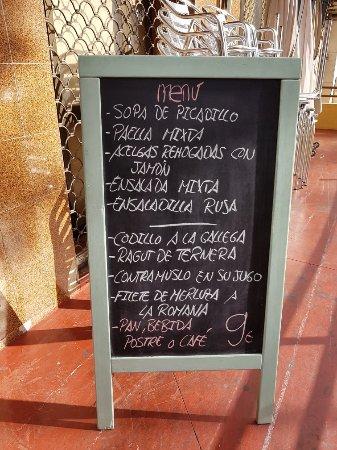 MENÚ
-SOPA DE PICADILLO
-PAELLA MIXTA
-ACELGAS REHOGADAS CON
JAMÓN
-ENSALADA MIXTA
-ENSALADILLA RUSA
-CODILLO A LA GALLEGA
-RAGUT DE TERNERA
-CONTRAMUSLO EN SU JUGO
-FILETE DE MERLUZA A
LA ROMANA
-PAN, BEBIDA
POSTRE O CAFÉ 9€